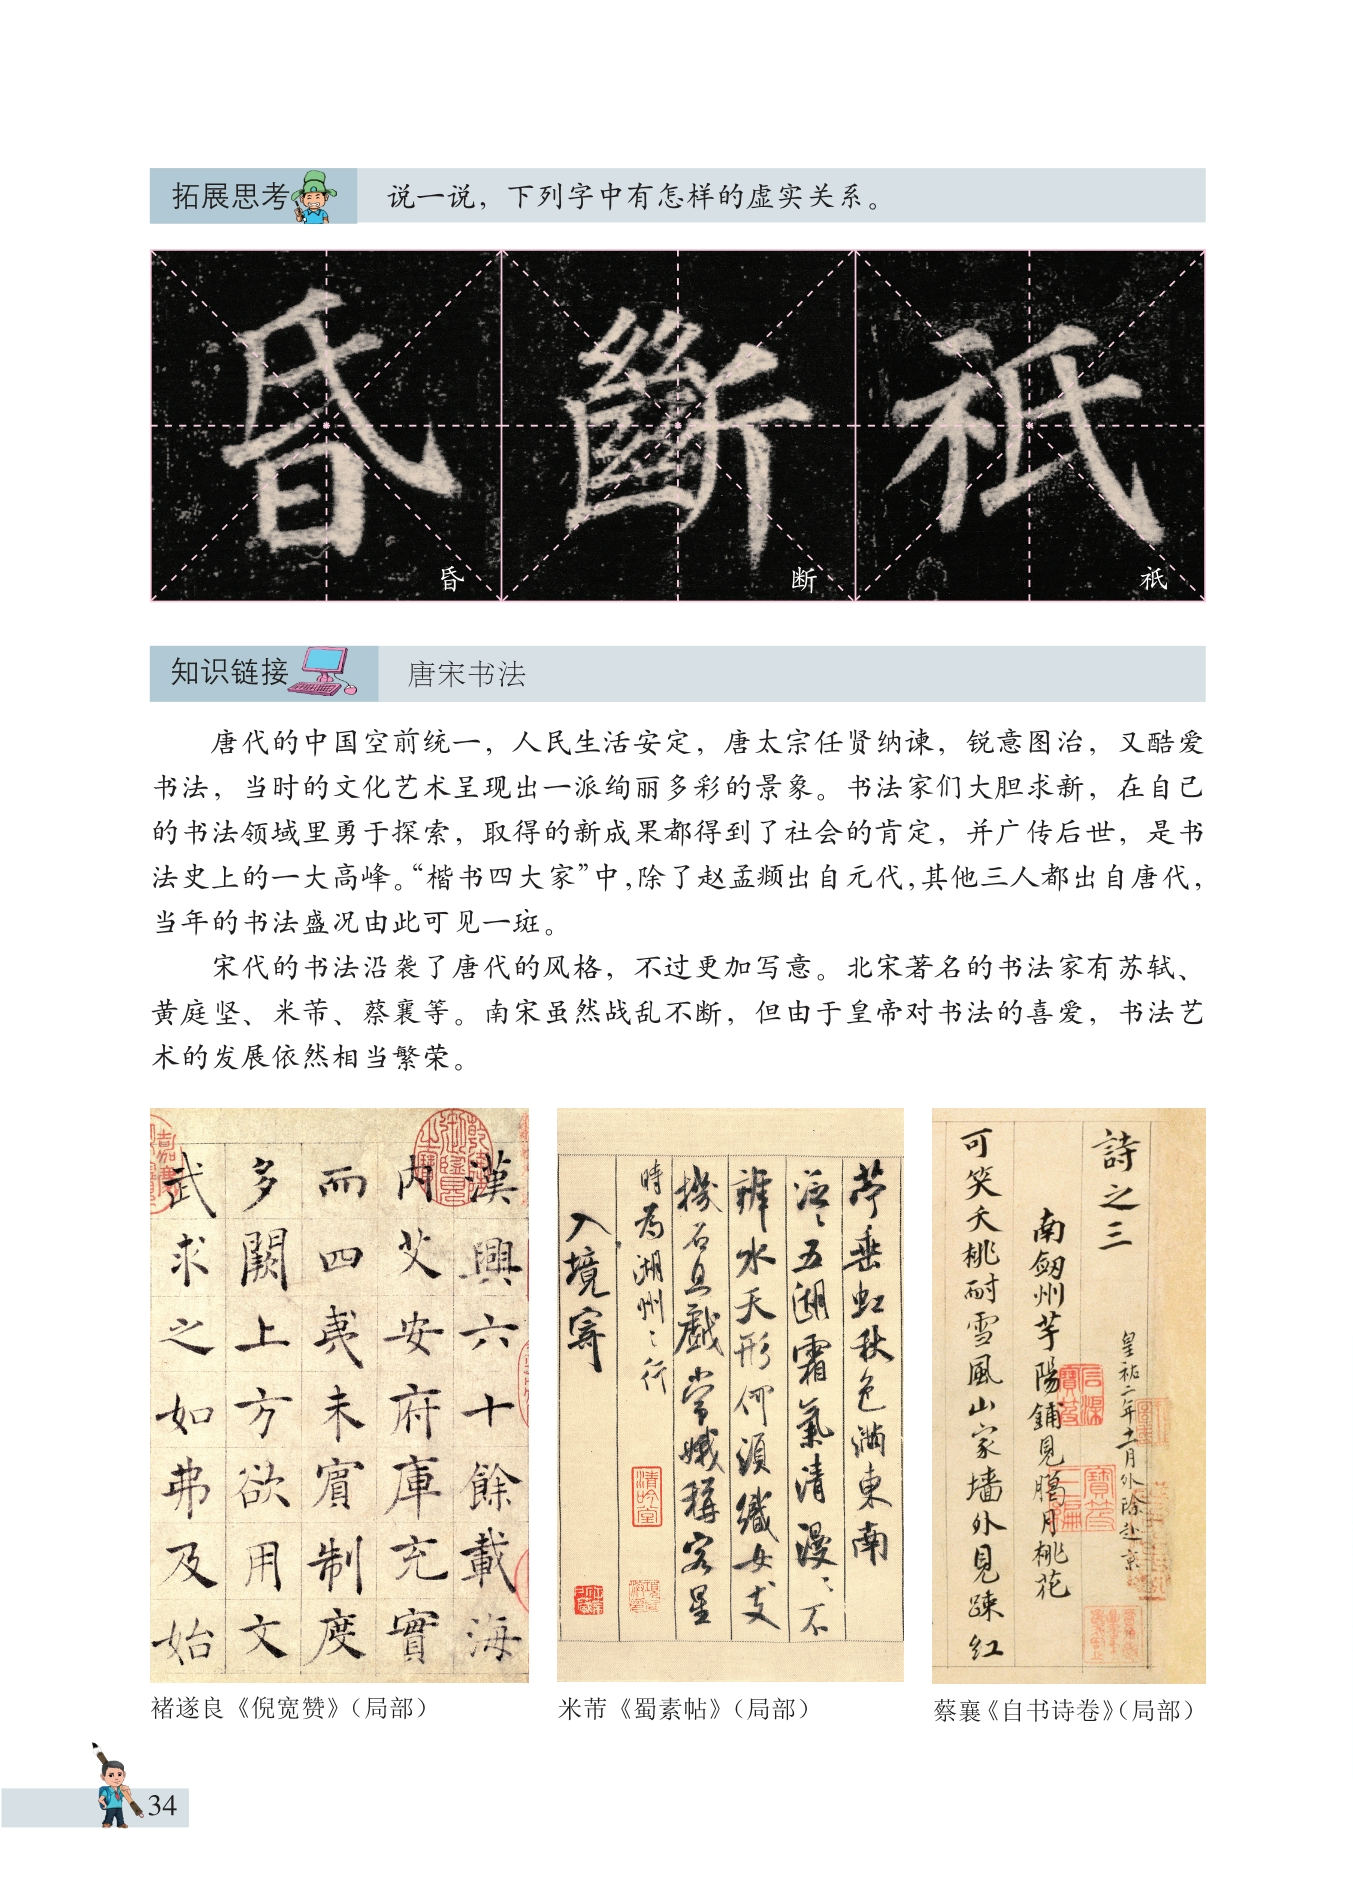 拓展思考
说一说，下列字中有怎样的虚实关系。
昏 斷 祇
昏 断 祇
知识链接
唐宋书法
唐代的中国空前统一，人民生活安定，唐太宗任贤纳谏，锐意图治，又酷爱
书法，当时的文化艺术呈现出一派绚丽多彩的景象。书法家们大胆求新，在自己
的书法领域里勇于探索，取得的新成果都得到了社会的肯定，并广传后世，是书
法史上的一大高峰。“楷书四大家”中，除了赵孟頫出自元代，其他三人都出自唐代，
当年的书法盛况由此可见一斑。
宋代的书法沿袭了唐代的风格，不过更加写意。北宋著名的书法家有苏轼、
黄庭坚、米芾、蔡襄等。南宋虽然战乱不断，但由于皇帝对书法的喜爱，书法艺
术的发展依然相当繁荣。
漢興六十餘載海
内艾安府庫充實
而四夷未賓制度
多闕上方欲用文
武求之如弗及始
褚遂良《倪宽赞》（局部）
葶垂虹秋色满東南
泛〻五湖霜氣清漫〻不
辨水天形何須織女支
機石且戲常娥稱客星
時為湖州〻行
入境寄
清吟堂
米芾《蜀素帖》（局部）
詩之三
皇祐二年十一月外除赴京
南劒州芋陽鋪見臈月桃花
可笑夭桃耐雪風山家墻外見疎紅
蔡襄《自书诗卷》（局部）
34